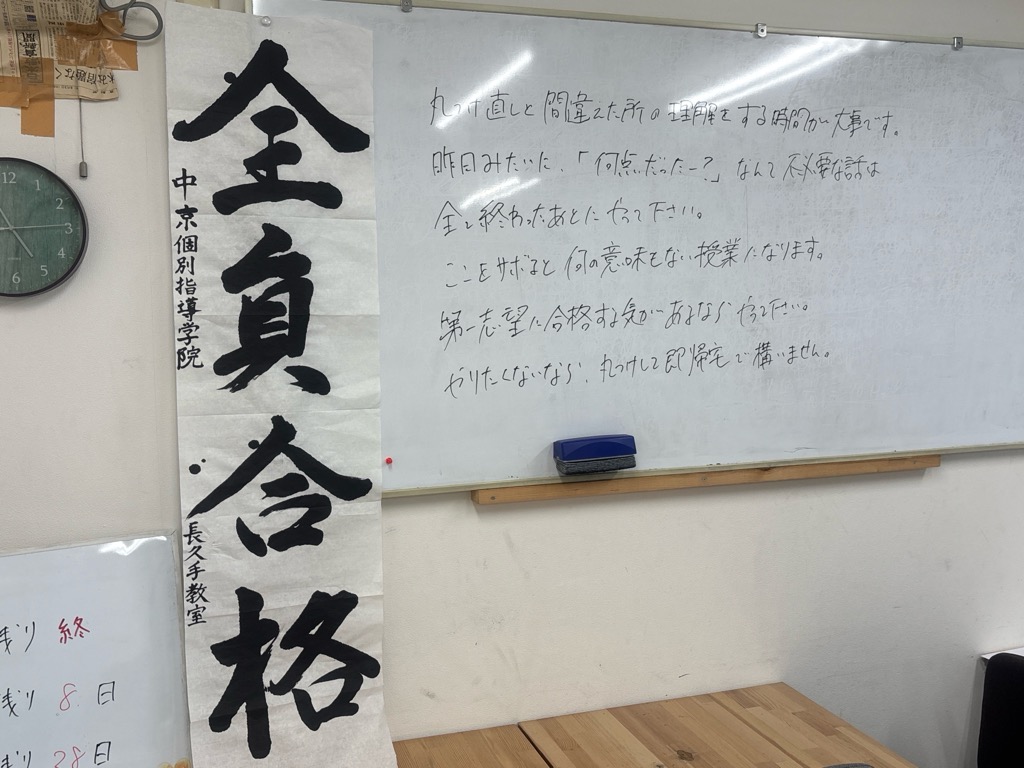 全員合格
中京個別指導学院
・長久手教室
丸つけ直しと間違えた所の理解をする時間が大事です。
昨日みたいに、「何点だったー?」なんて不必要な話は
全て終わったあとにやって下さい。
ここをサボると何の意味もない授業になります。
第一志望に合格する気があるならやって下さい。
やりたくないなら、丸つけして即帰宅で構いません。
12
1
2
3
4
5
6
残り 終
残り 8 日
残り 28日